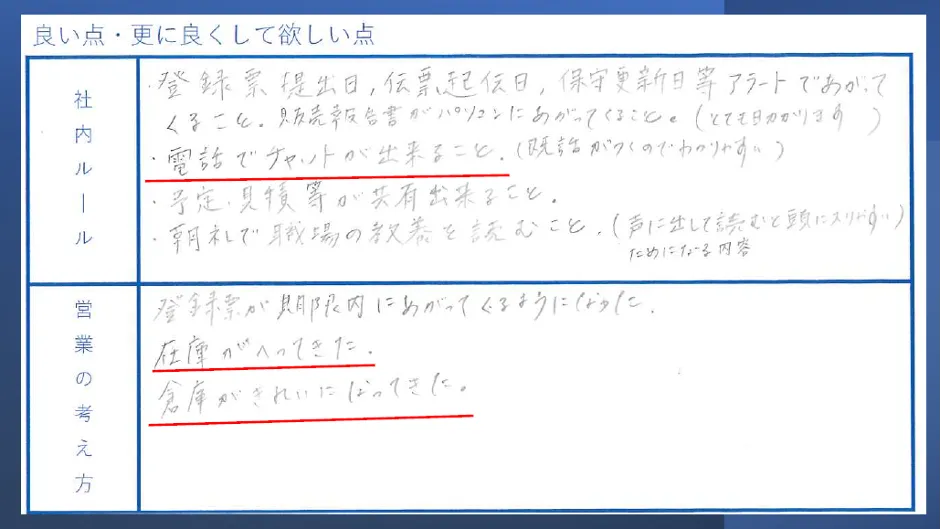 良い点・更に良くして欲しい点
社内ルール
・登録票提出日,伝票起伝日,保守更新日等アラートであがって
くること。販売報告書がパソコンにあがってくること。(とても助かります)
・電話でチャットが出来ること。(既読がつくのでわかりやすい)
・予定、見積等が共有出来ること。
・朝礼で職場の教養を読むこと。(声に出して読むと頭に入りやすい)
ためになる内容
営業の考え方
登録票が期限内にあがってくるようになった。
在庫がへってきた。
倉庫がきれいになってきた。